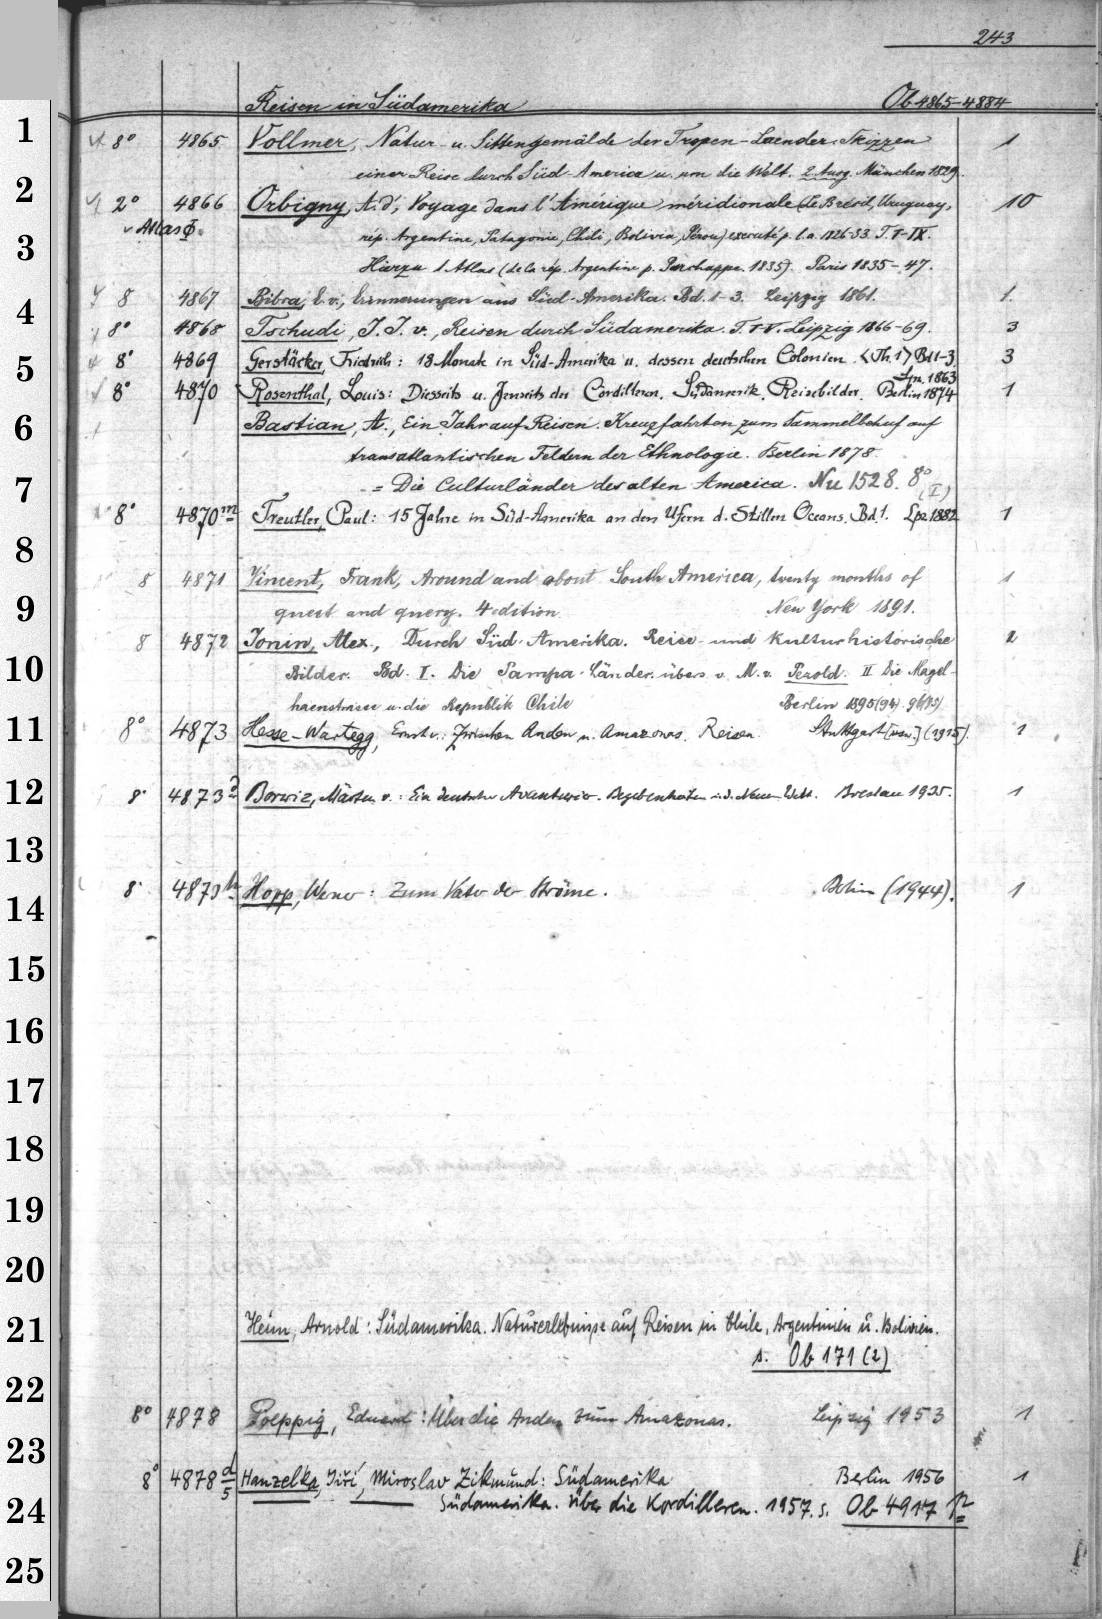 243
Reisen in Südamerika Ob 4865-4884
8° 4865 Vollmer, Natur- u. Sittengemälde der Tropen-Laender. Skizzen 1
einer Reise durch Süd-America u. um die Welt. 2. Ausg. München 1829.
2° 4866 Orbigny, A. d', Voyage dans l'Amérique méridionale (Le Brésil, Uruguay, 10
Atlas Φ. rép. Argentine, Patagonie, Chili, Bolivia, Pérou) executé p. l. a. 1826-33. T. I-IX.
Hierzu 1 Atlas (de la rép. Argentine p. Parchappe. 1835). Paris 1835-47.
8 4867 Bibra, E. v., Erinnerungen aus Süd-Amerika. Bd. 1-3. Leipzig 1861. 1.
8° 4868 Tschudi, J. J. v., Reisen durch Südamerika. T. I-V. Leipzig 1866-69. 3
8° 4869 Gerstäcker, Friedrich: 18 Monate in Süd-Amerika u. dessen deutschen Colonien. <Th. 1> Bd 1-3 3
Lpz. 1863
8° 4870 Rosenthal, Louis: Diesseits u. Jenseits der Cordilleren. Südamerik. Reisebilder. Berlin 1874 1
Bastian, A., Ein Jahr auf Reisen. Kreuzfahrten zum Sammelbehuf auf
transatlantischen Feldern der Ethnologie. Berlin 1878.
= Die Culturländer des alten America. Nu 1528. 8°
(I)
8° 4870m Treutler, Paul: 15 Jahre in Süd-Amerika an den Ufern d. Stillen Oceans. Bd. 1. Lpz 1882 1
8 4871 Vincent, Frank, Around and about South America, twenty months of 1
quest and query. 4 edition. New York 1891.
8 4872 Ionin, Alex., Durch Süd-Amerika. Reise- und kulturhistorische 2
Bilder. Bd. I. Die Pampa-Länder. übers. v. M. v. Pezold. II Die Magel-
haenstrasse u. die Republik Chile Berlin 1895
8° 4873 Hesse-Wartegg, Ernst v.: Zwischen Anden u. Amazonas. Reisen. Stuttgart [usw.] (1915). 1
8° 4873a Borwiz, v.: Ein deutscher Avanturier. Begebenheiten i. d. Neuen Welt. Breslau 1925. 1
8° 4873h Hopp, Werner: Zum Vater der Ströme. Berlin (1944). 1
Heim, Arnold: Südamerika. Naturerlebnisse auf Reisen in Chile, Argentinien u. Bolivien.
s. Ob 171 (2)
8° 4878 Poeppig, Eduard: Über die Anden zum Amazonas. Leipzig 1953 1
8° 4878 d/5 Hanzelka, Jiří, Miroslav Zikmund: Südamerika Berlin 1956 1
Südamerika. Über die Kordilleren. 1957. s. Ob 4917 p
1
2
3
4
5
6
7
8
9
10
11
12
13
14
15
16
17
18
19
20
21
22
23
24
25